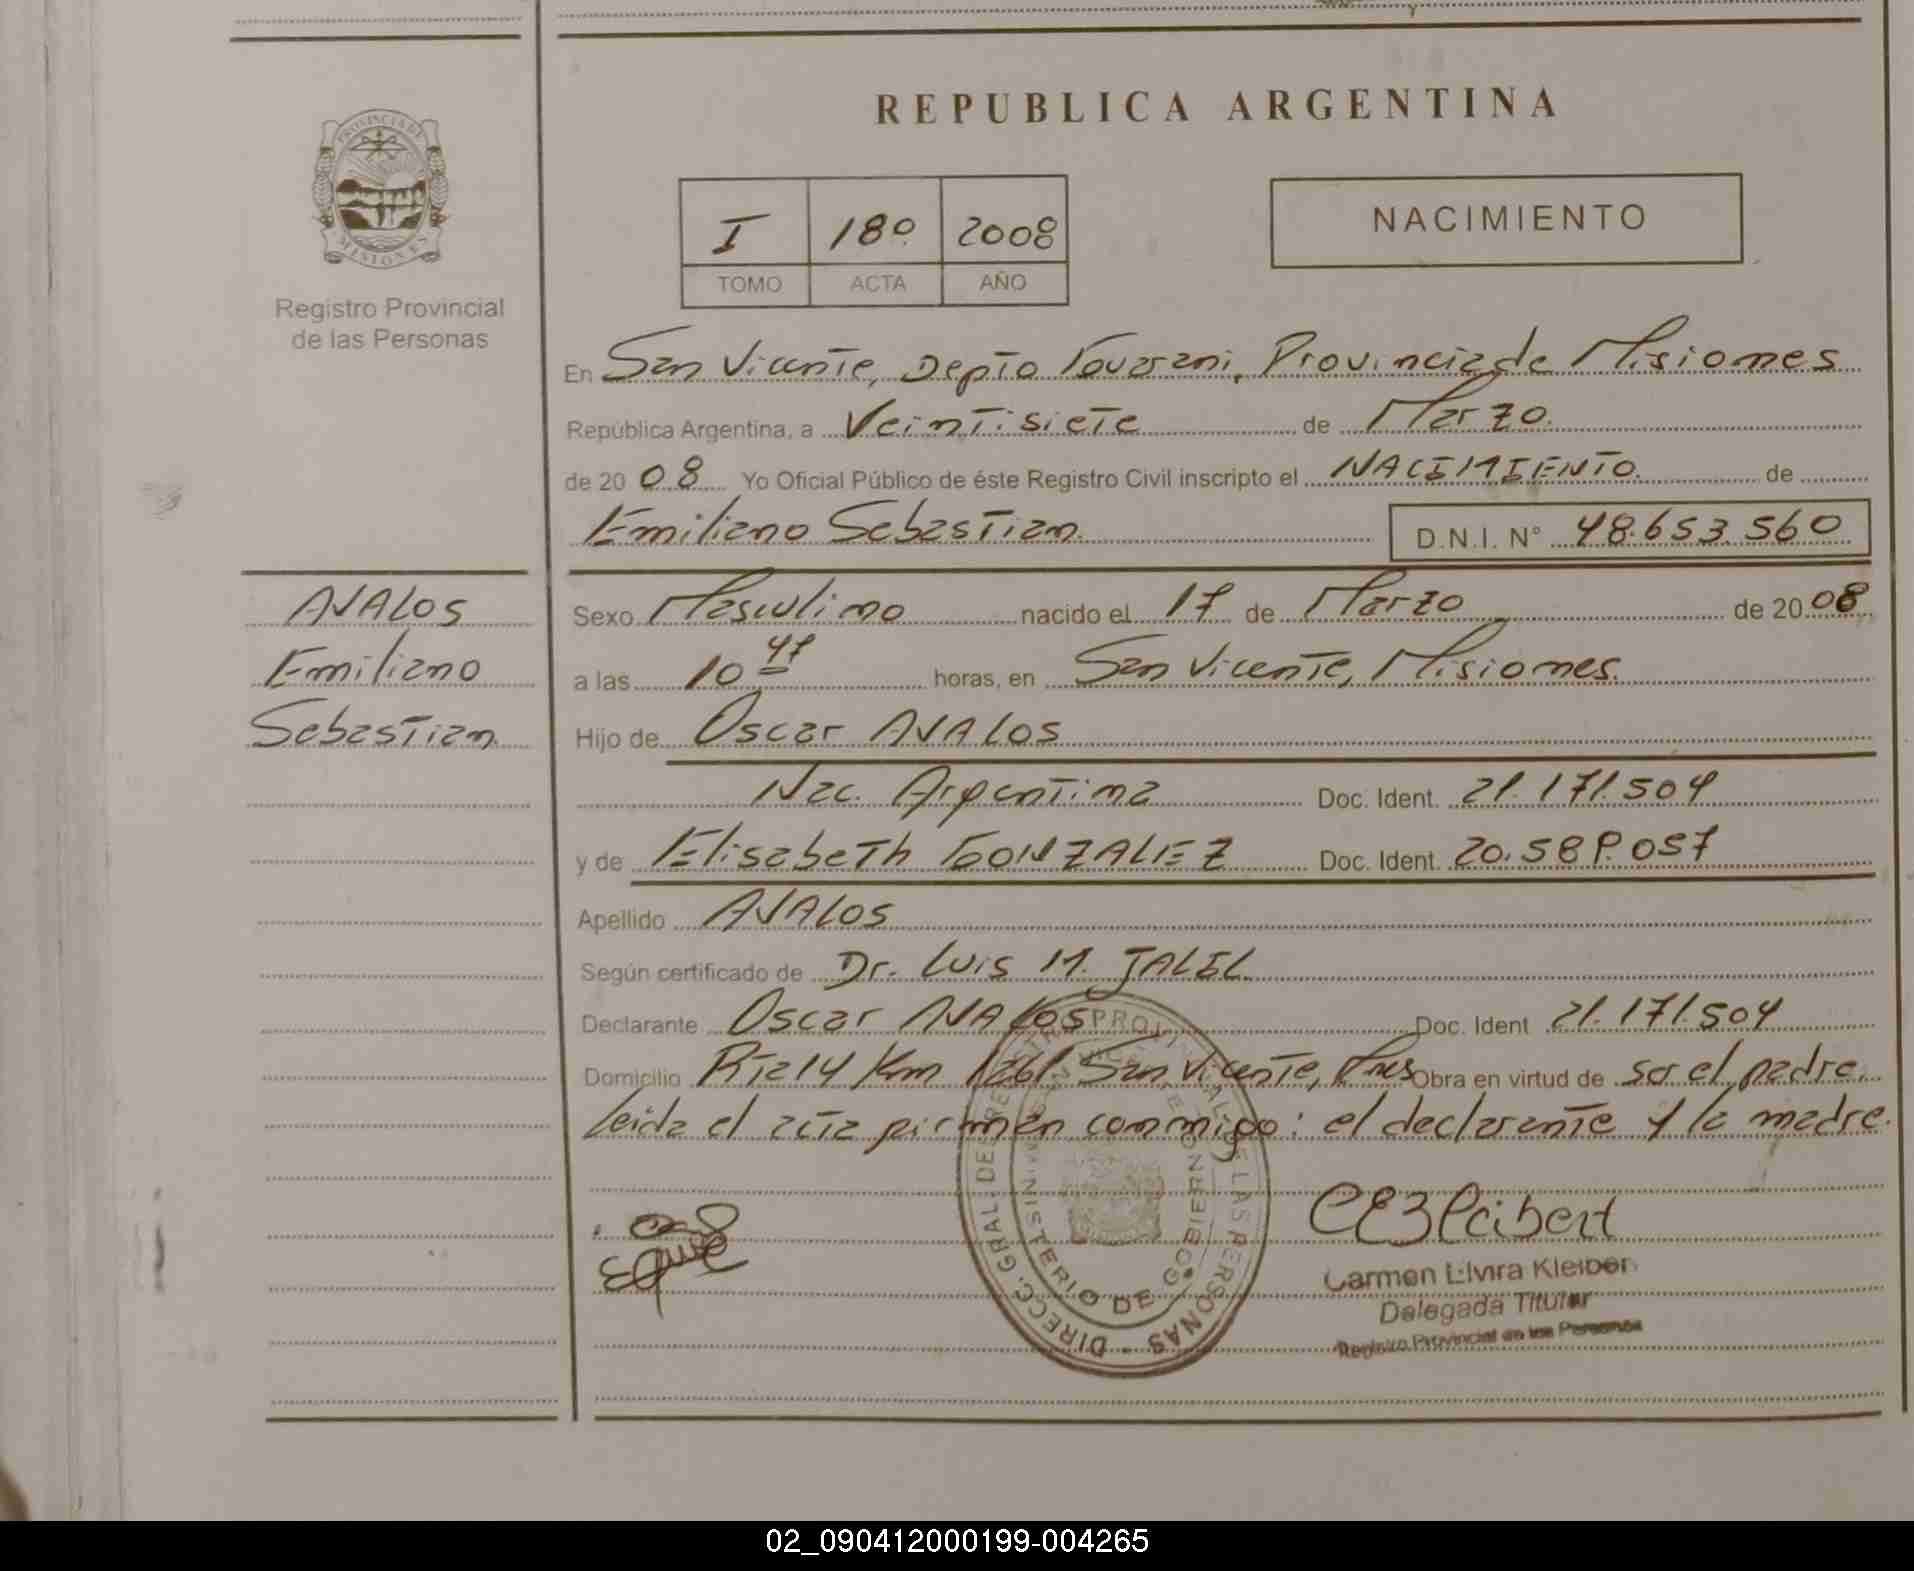 REPUBLICA ARGENTINA
PROVINCIA DE
MISIONES
Registro Provincial
de las Personas
I 180 2008
TOMO ACTA AÑO
NACIMIENTO
En San Vicente, Depto Guarani, Provincia de Misiones
República Argentina, a Veintisiete de Marzo.
de 20 08 Yo Oficial Público de éste Registro Civil inscripto el NACIMIENTO. de
Emiliano Sebastian. D.N.I. N° 48.653.560
AVALOS
Emiliano
Sebastian.
Sexo Masculino nacido el 17 de Marzo de 2008
a las 10 47 horas, en San Vicente, Misiones.
Hijo de Oscar AVALOS
Nac. Argentina Doc. Ident. 21.171.504
y de Elisabeth GONZALEZ Doc. Ident. 20.589.057
Apellido AVALOS
Según certificado de Dr. Luis M. JALIL
Declarante Oscar AVALOS Doc. Ident 21.171.504
Domicilio Rta 14 Km 1261 San Vicente, Mnes Obra en virtud de ser el padre.
Leida el acta firman conmigo: el declarante y la madre.
DIRECC. GRAL. DE REGISTRO PROVINCIAL DE LAS PERSONAS
MINISTERIO DE GOBIERNO
Carmen Elvira Kleiber
Delegada Titular
Registro Provincial de las Personas
02_090412000199-004265